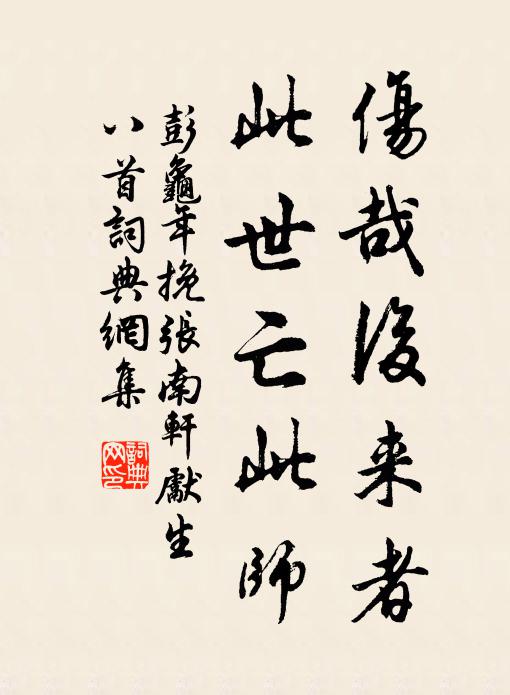 傷哉後来者
此世亡此師
彭龜年挽張南軒獻生
八首詞典網集
詞典网印